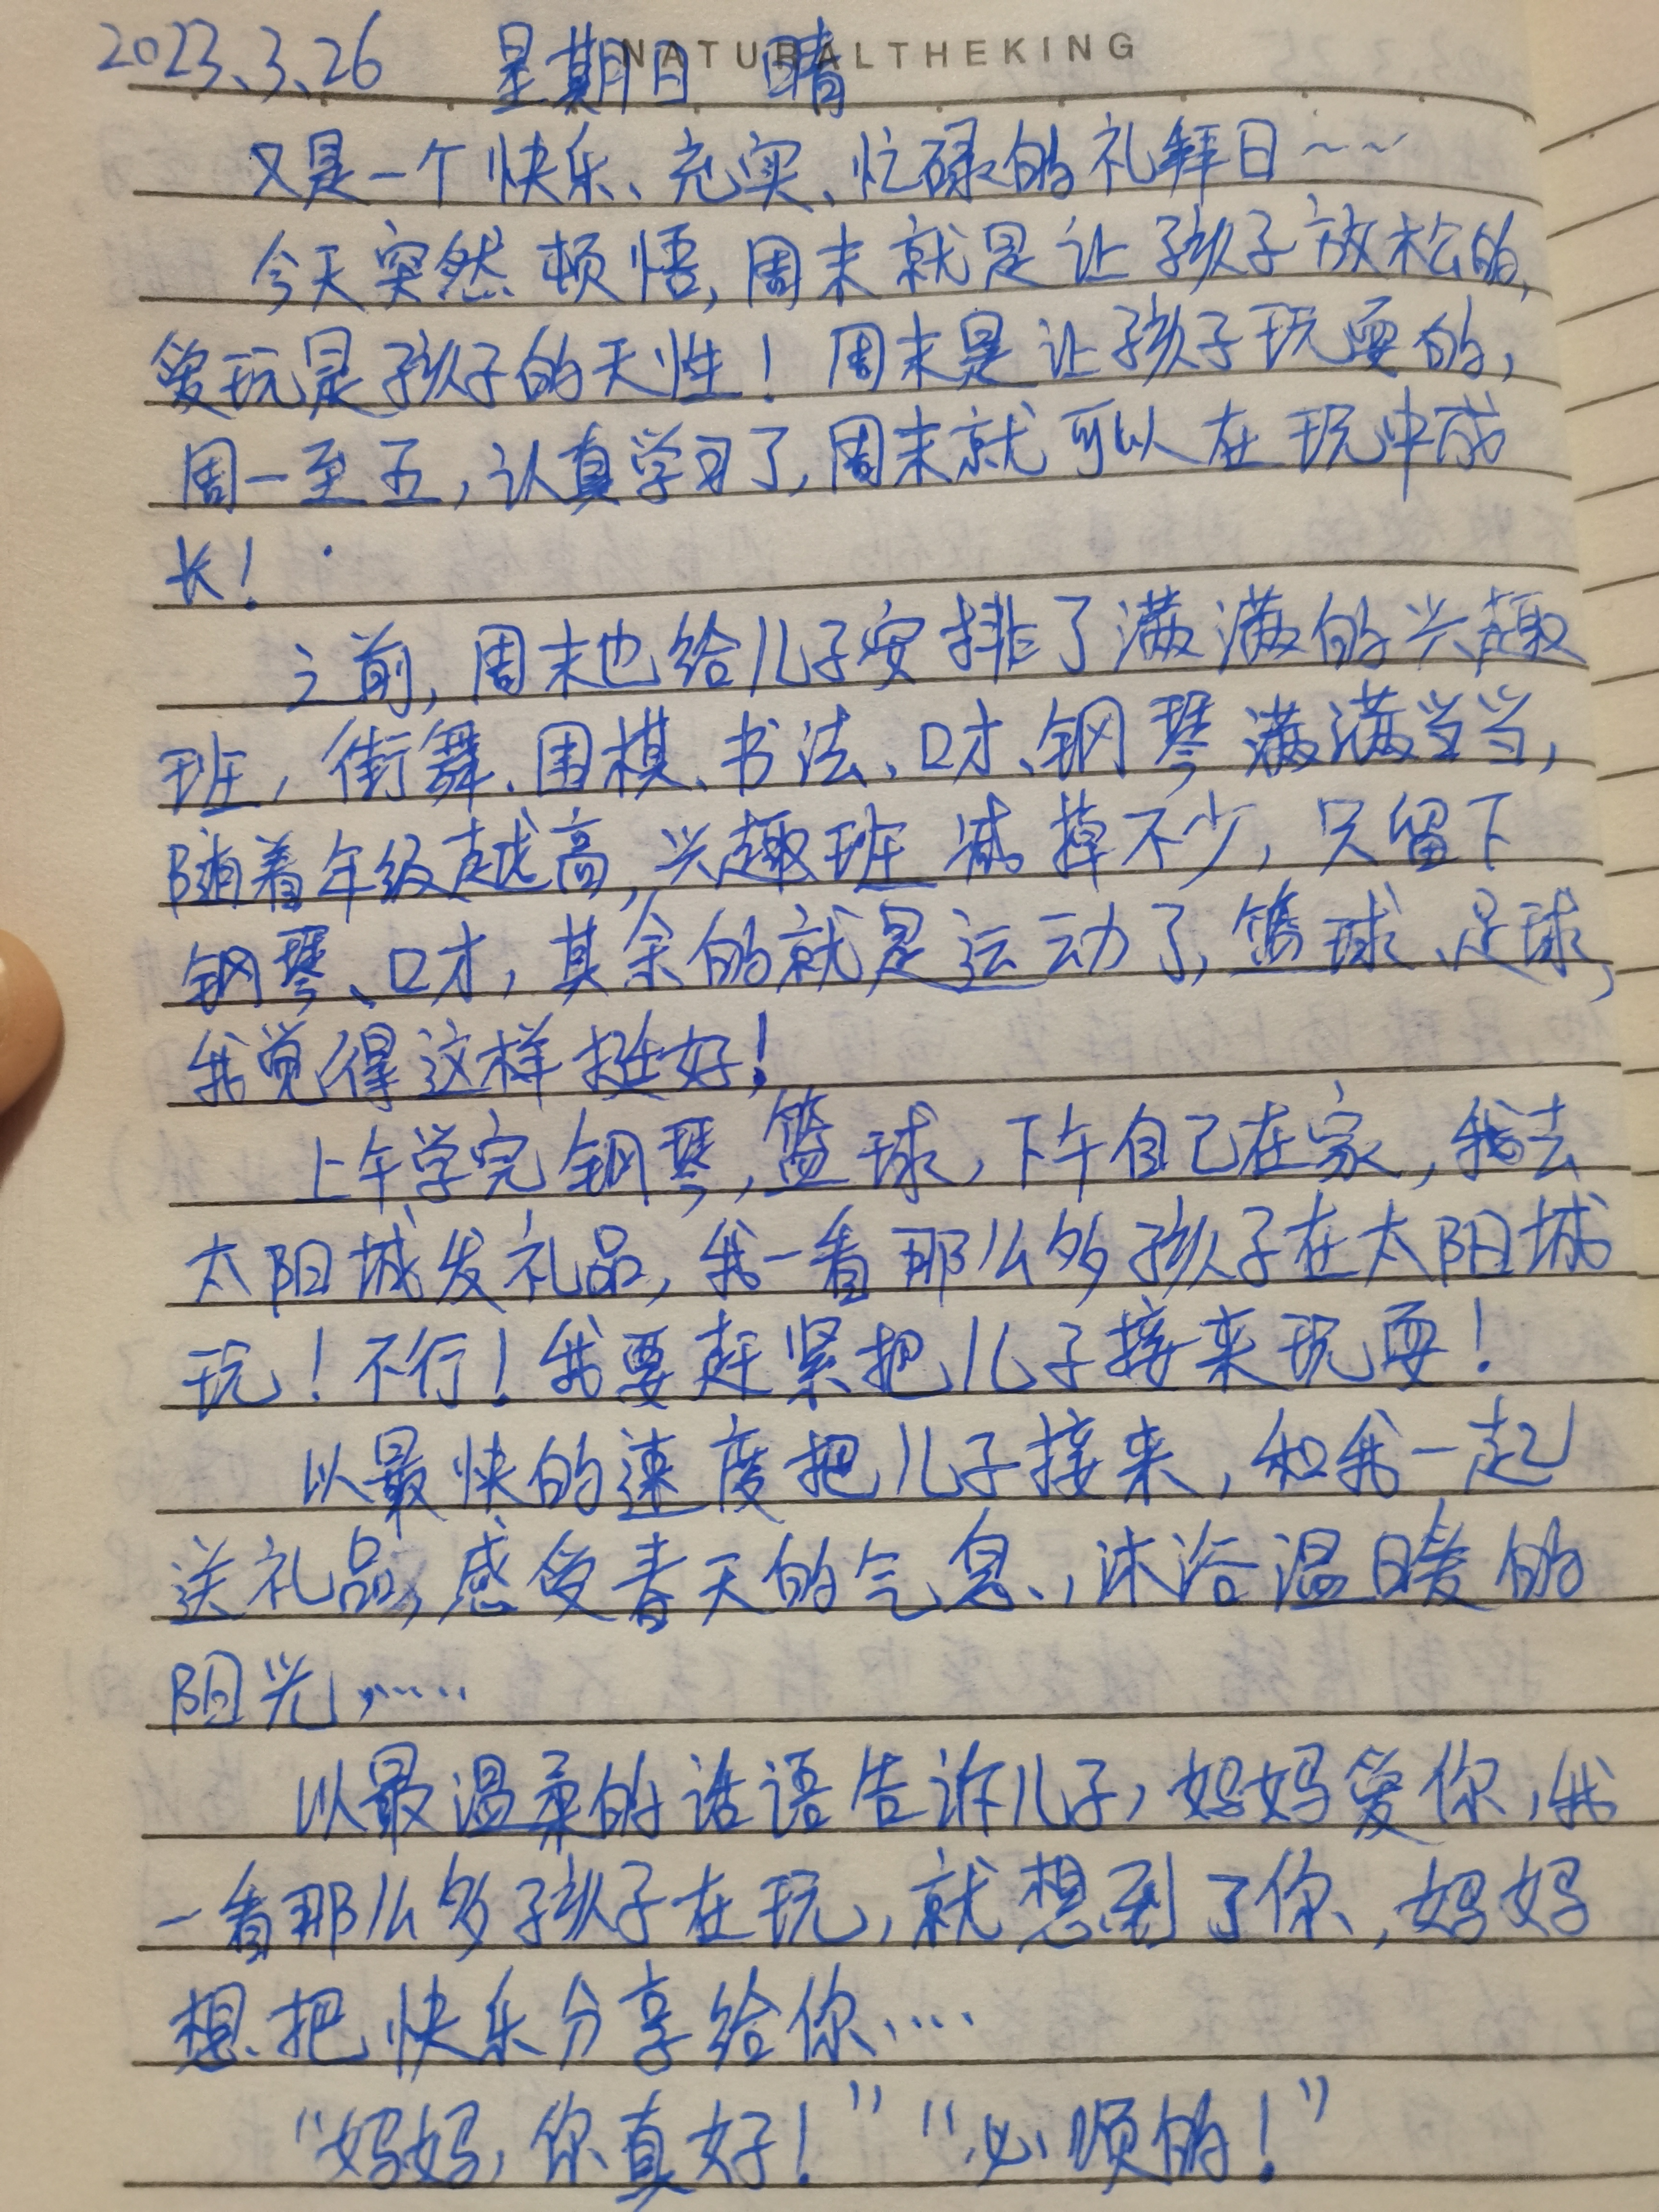 NATURALTHEKING
2023.3.26 星期日 晴
又是一个快乐、充实、忙碌的礼拜日~~
今天突然顿悟,周末就是让孩子放松的,
爱玩是孩子的天性!周末是让孩子玩耍的,
周一至五,认真学习了,周末就可以在玩中成
长!
之前,周末也给儿子安排了满满的兴趣
班,街舞、围棋、书法、口才、钢琴满满当当,
随着年级越高,兴趣班减掉不少,只留下
钢琴、口才,其余的就是运动了,篮球、足球,
我觉得这样挺好!
上午学完钢琴,篮球,下午自己在家,我去
太阳城发礼品,我一看那么多孩子在太阳城
玩!不行!我要赶紧把儿子接来玩耍!
以最快的速度把儿子接来,和我一起
送礼品,感受春天的气息,沐浴温暖的
阳光……
以最温柔的话语告诉儿子,妈妈爱你,我
一看那么多孩子在玩,就想到了你,妈妈
想把快乐分享给你……
“妈妈,你真好!”“必须的!”